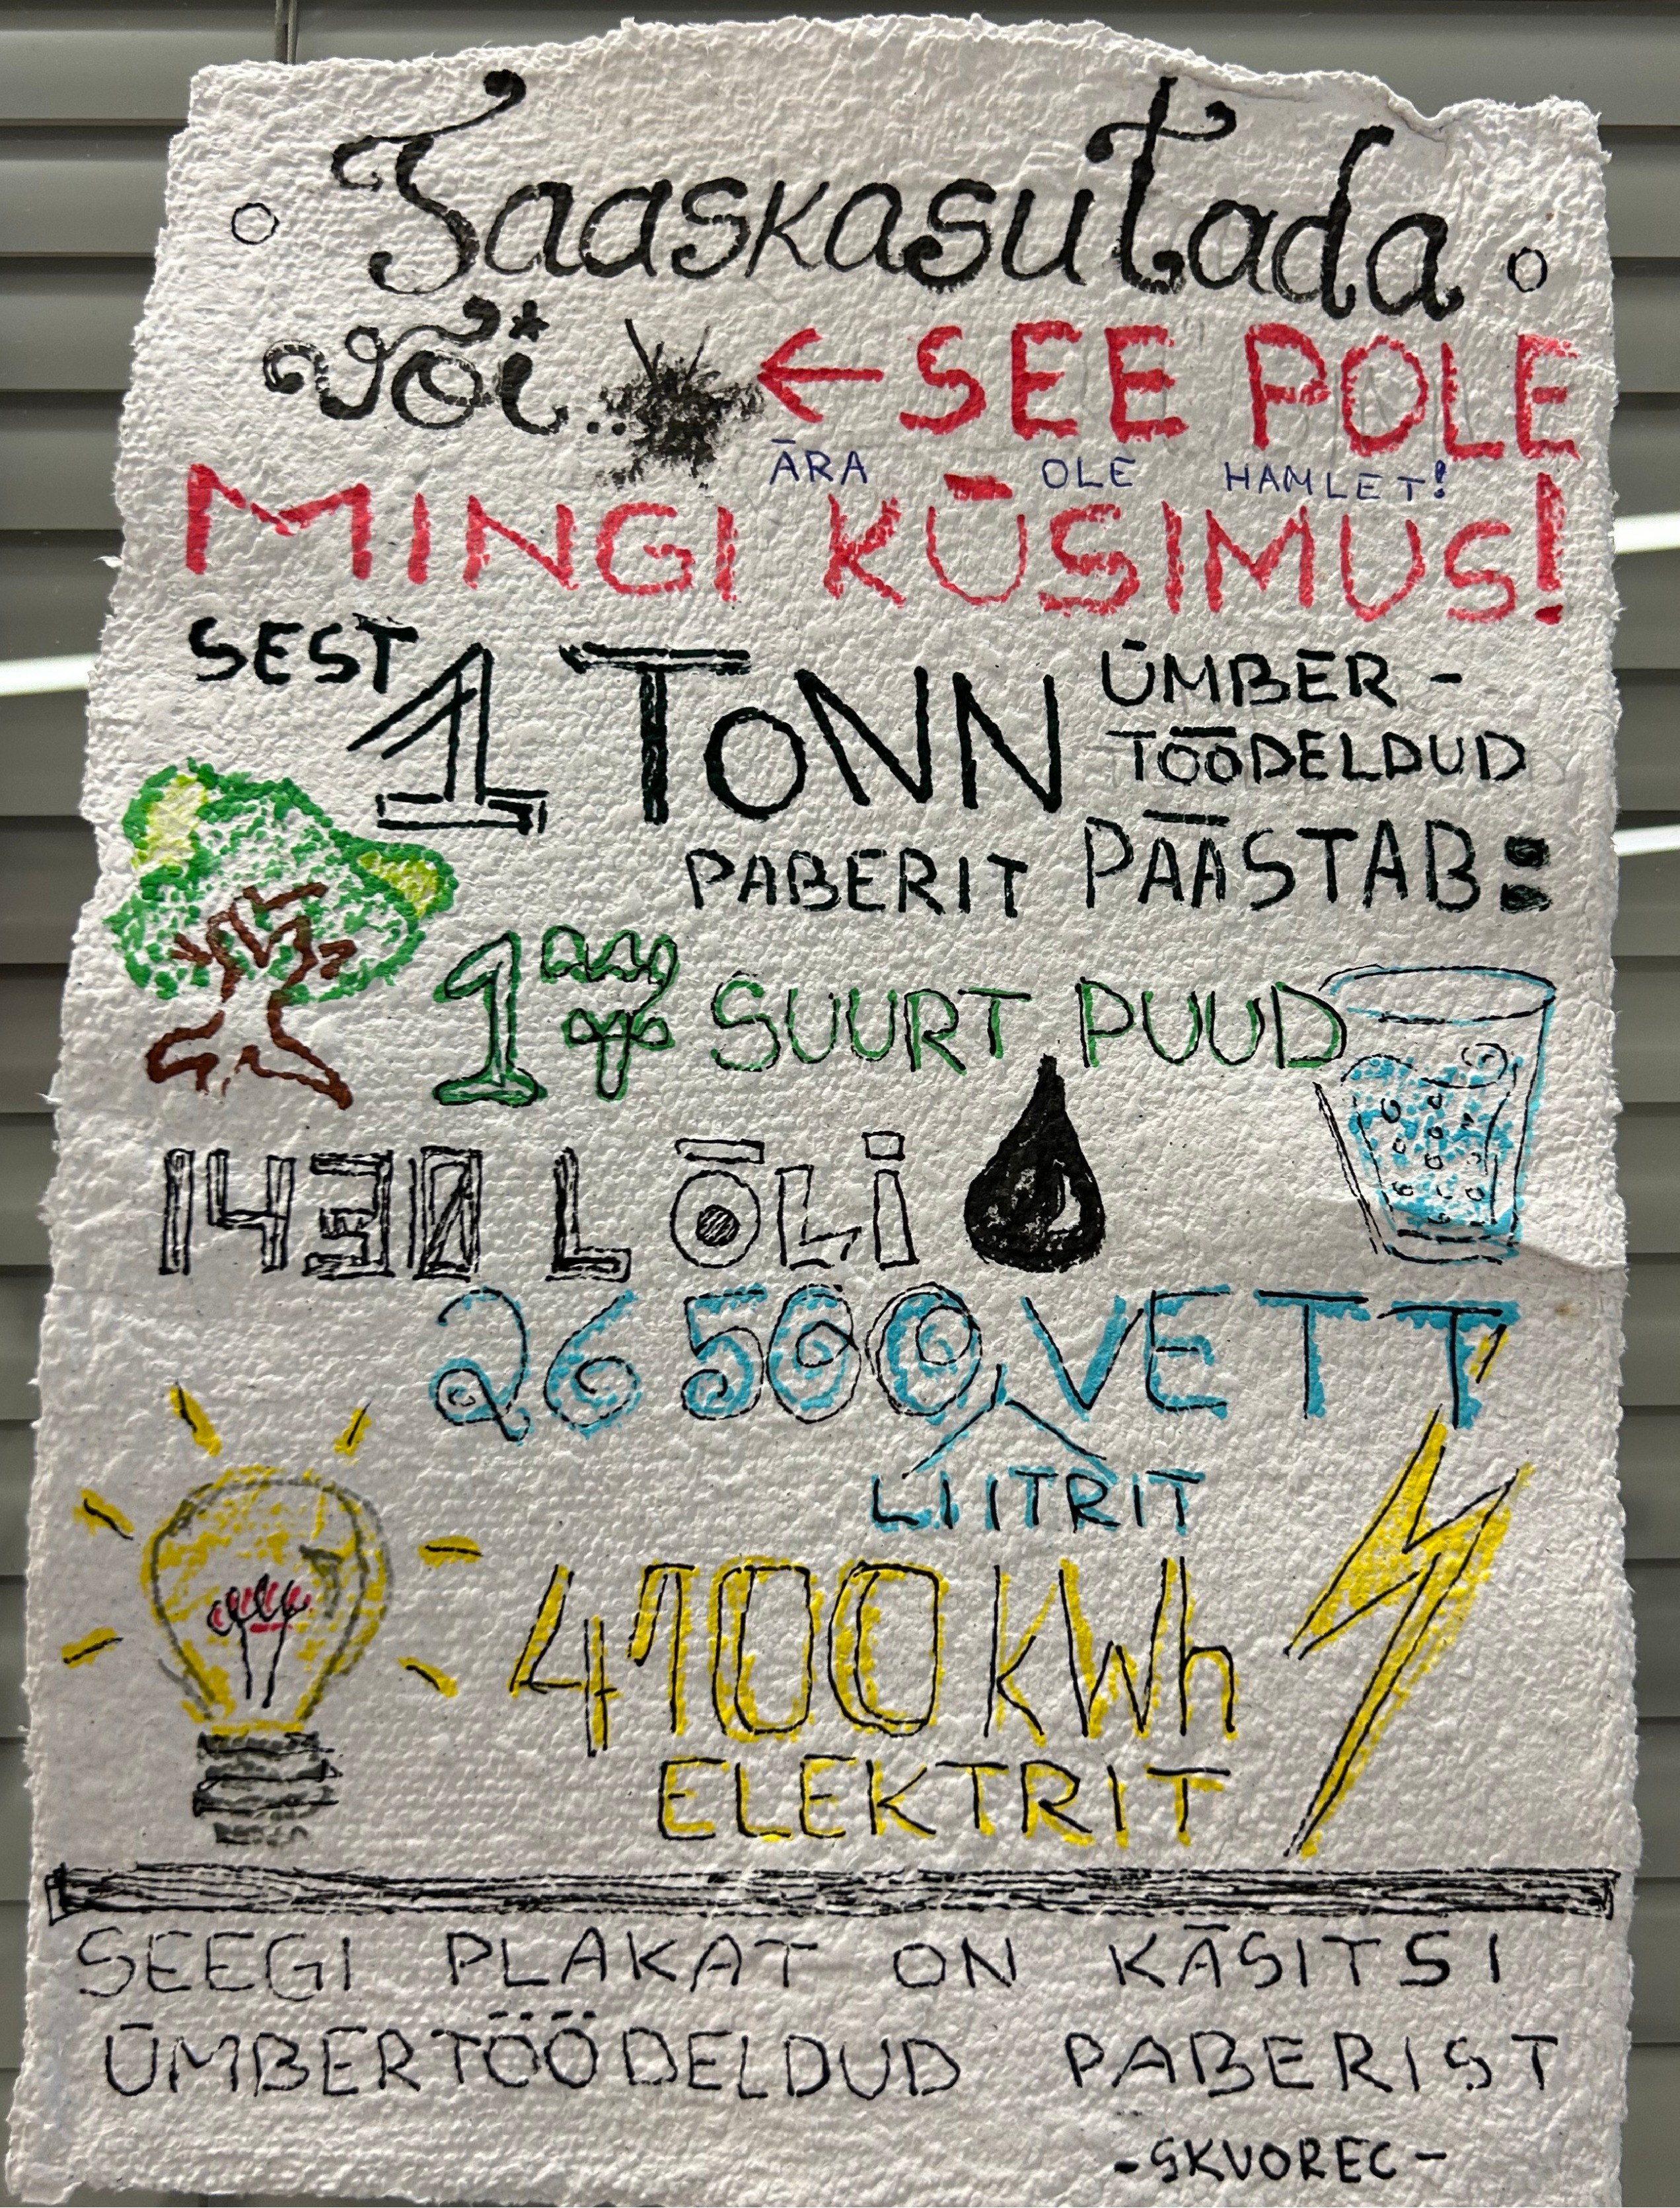 Taaskasutada
või.. ← SEE POLE
ÄRA OLE HAMLET!
MINGI KÜSIMUS!
SEST 1 TONN ÜMBER-
TÖÖDELDUD
PABERIT PÄÄSTAB:
17 SUURT PUUD
1430 L ÕLI
26 500 VETT
LIITRIT
4100 kWh
ELEKTRIT
SEEGI PLAKAT ON KÄSITSI
ÜMBERTÖÖDELDUD PABERIST
-SKVOREC-